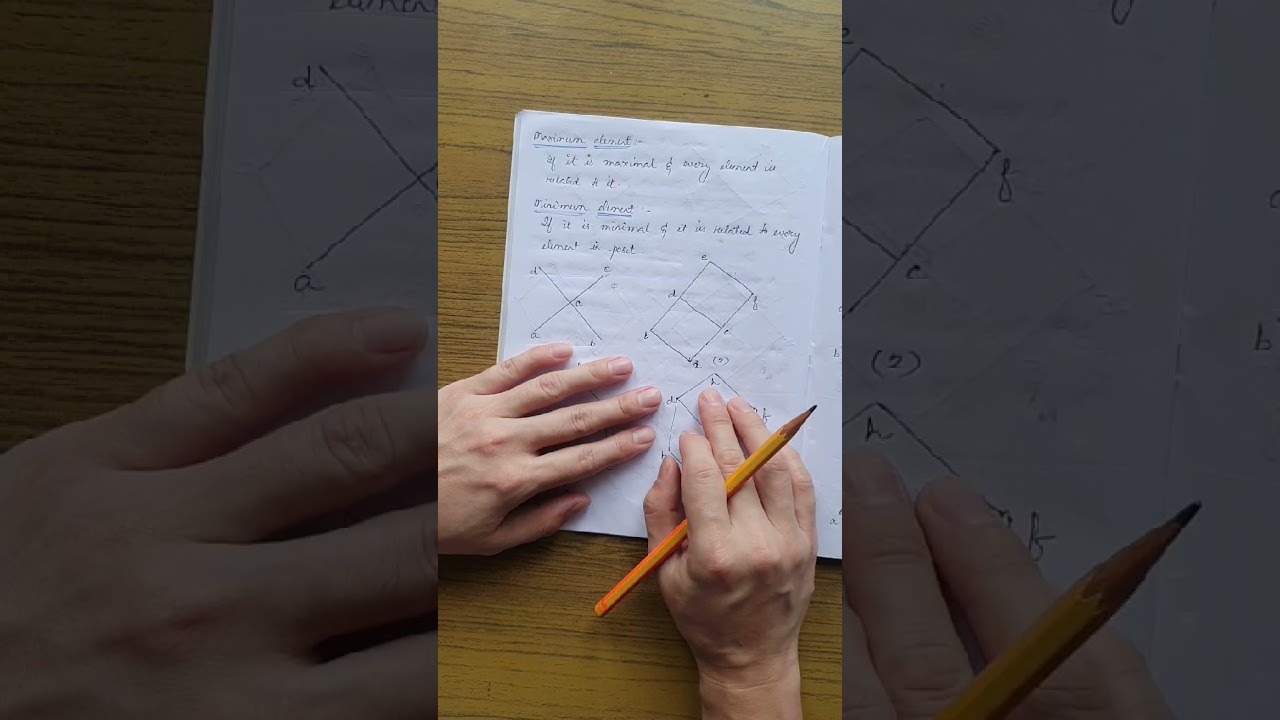 Maximum element :-
If it is maximal & every element is
related to it.
Minimum element :-
If it is minimal & it is related to every
element in poset
e
d
c
a
b
e
d
f
b
c
a
(2)
h
d
f
b